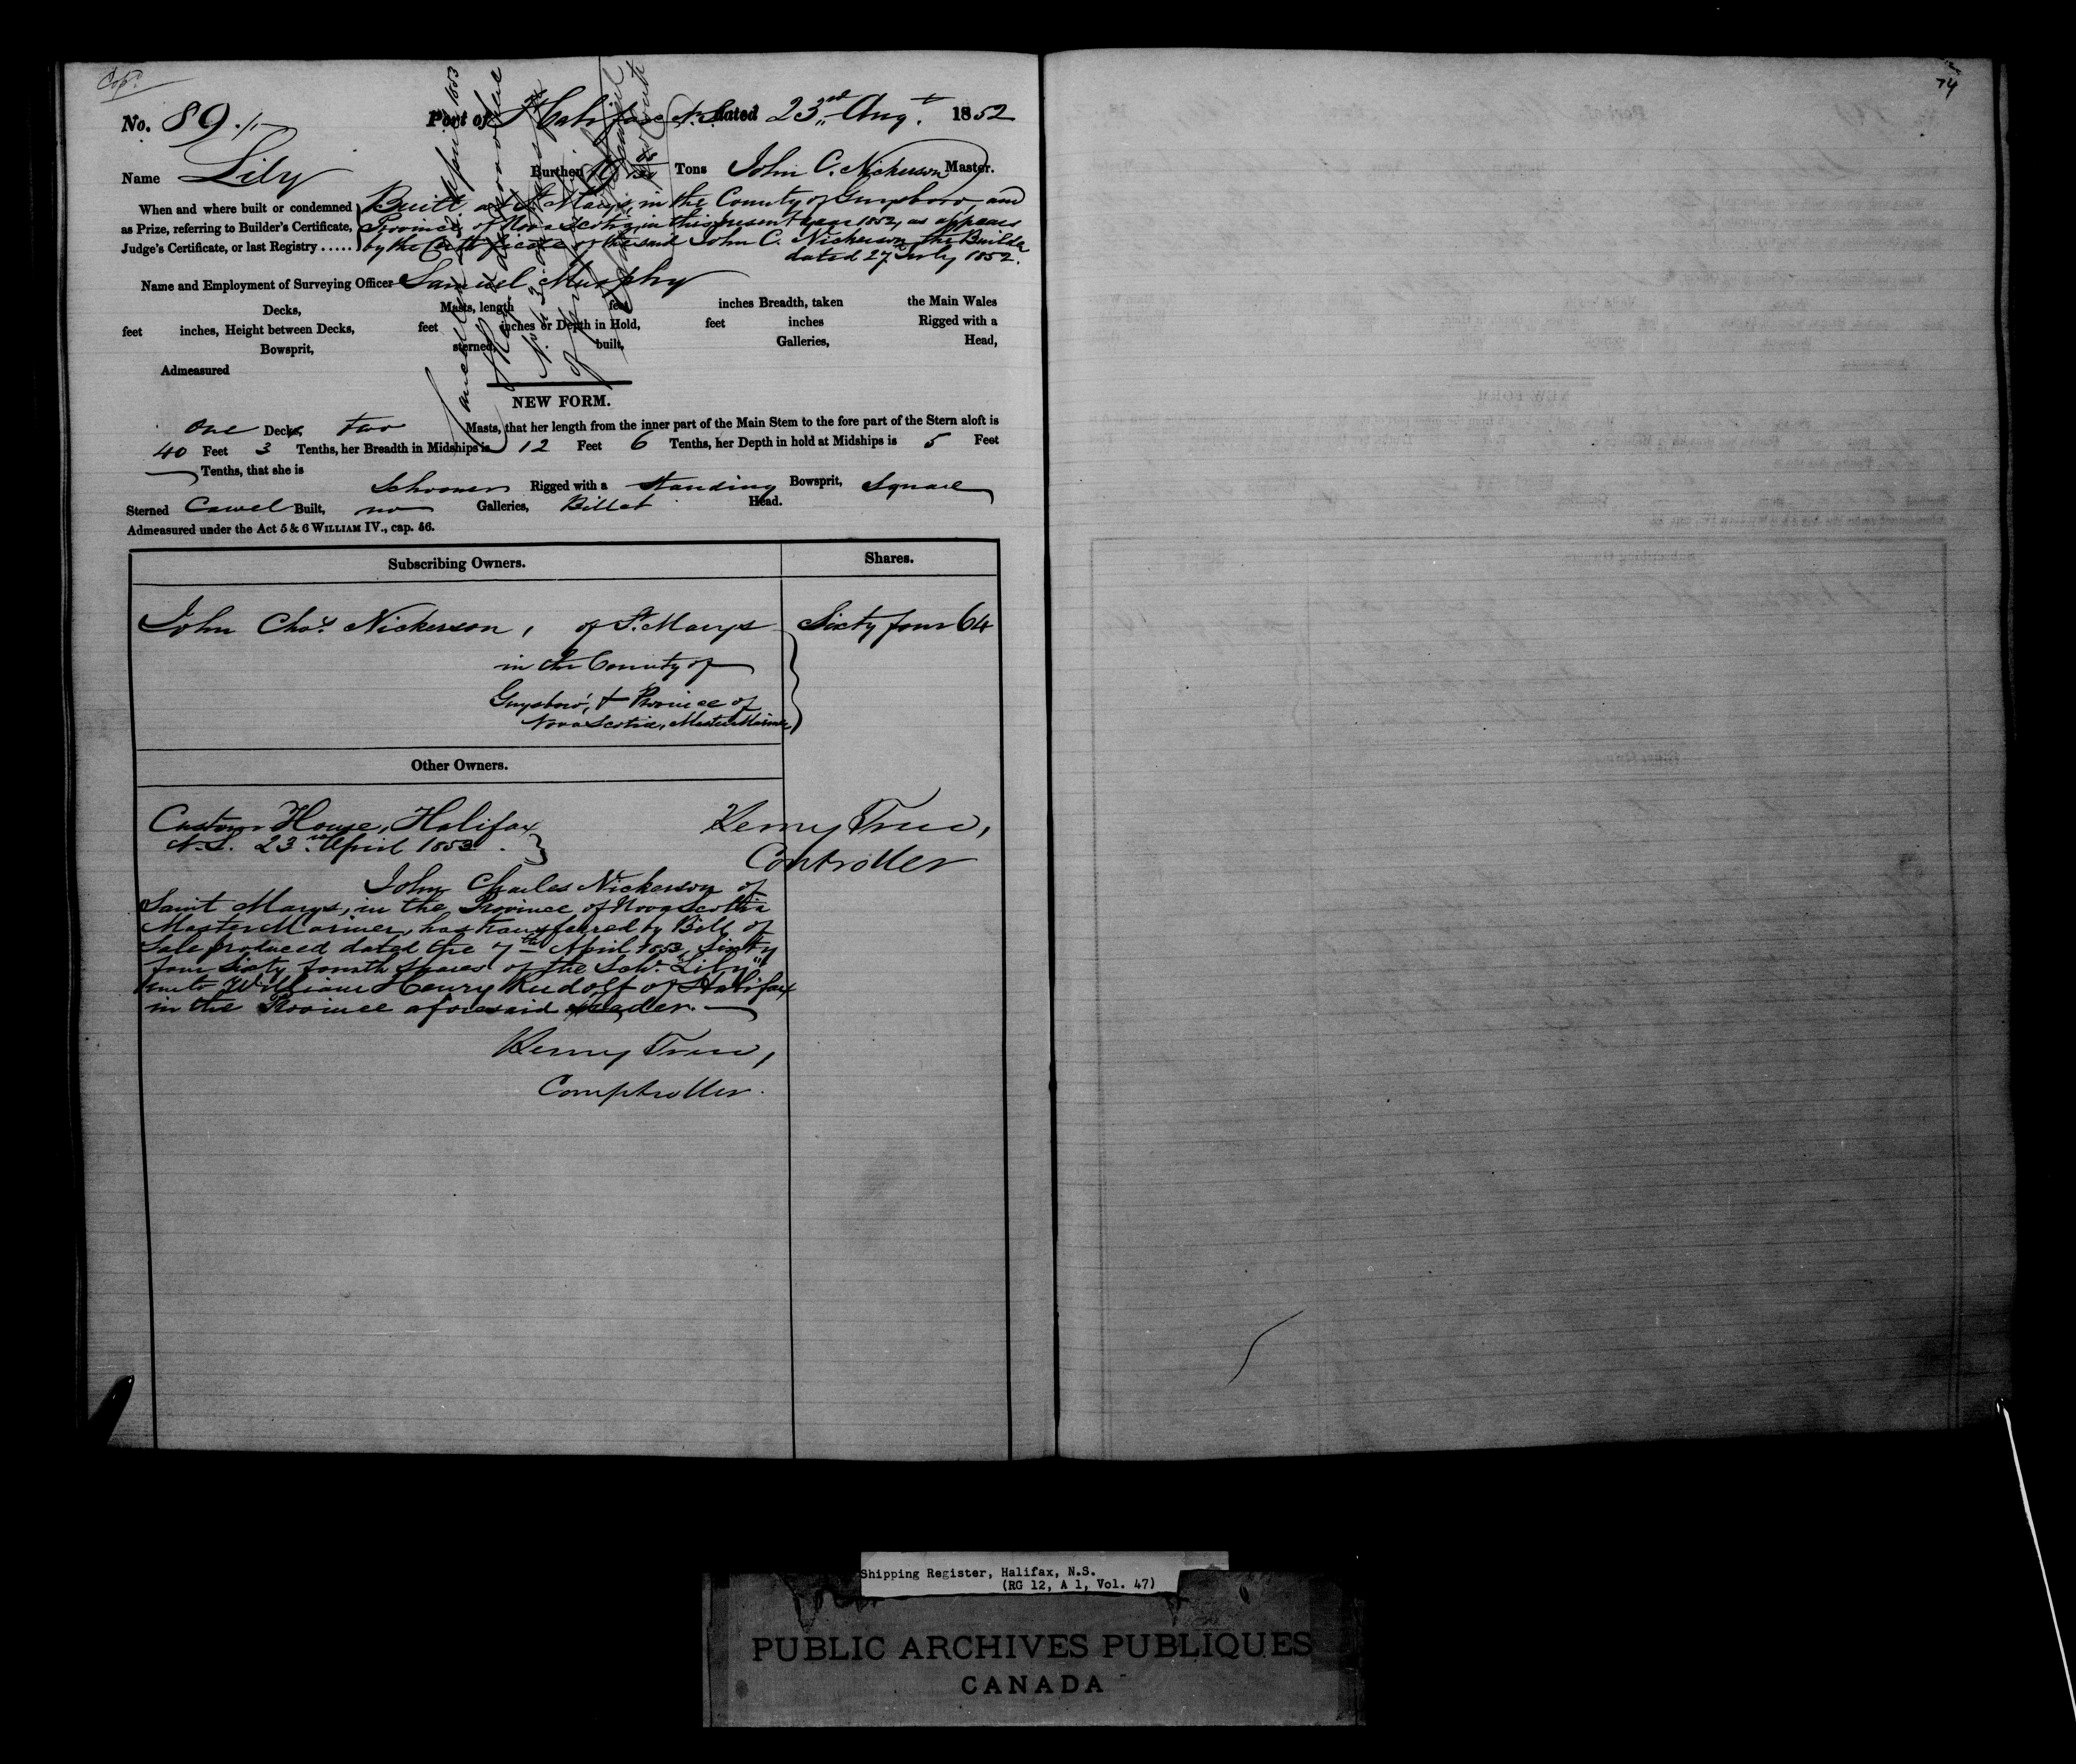 Copd.
74
No. 89
Port of Halifax N.S. dated 23rd Augt. 1852
Name Lily Burthen Tons John C. Nickerson Master.
When and where built or condemned
as Prize, referring to Builder's Certificate,
Judge's Certificate, or last Registry .....
Built at St Marys, in the County of Guysboro, and
Province of Nova Scotia, in this present year 1852, as appears
by the Certificate of the said John C. Nickerson the Builder
dated 27 July 1852.
Name and Employment of Surveying Officer Samuel Murphy
Decks, Masts, length feet inches Breadth, taken the Main Wales
feet inches, Height between Decks, feet inches or Depth in Hold, feet inches Rigged with a
Bowsprit, sterned, built, Galleries, Head,
Admeasured
NEW FORM.
One Decks, two Masts, that her length from the inner part of the Main Stem to the fore part of the Stern aloft is
40 Feet 3 Tenths, her Breadth in Midships is 12 Feet 6 Tenths, her Depth in hold at Midships is 5 Feet
Tenths, that she is
Schooner Rigged with a Standing Bowsprit, Square
Sterned Carvel Built, no Galleries, Billet Head.
Admeasured under the Act 5 & 6 WILLIAM IV., cap. 56.
Subscribing Owners. Shares.
John Chas. Nickerson, of St. Marys Sixty four 64
in the County of
Guysboro', & Province of
Nova Scotia, Master Mariner
Other Owners.
Custom House, Halifax
N.S. 23rd April 1853.
Controller
John Charles Nickerson of
Saint Marys, in the Province of Nova Scotia
Master Mariner, has transferred by Bill of
Sale produced dated the 7th April 1853, Sixty
four Sixty fourth shares of the Schr. "Lily"
unto William Henry Rudolf of Halifax
in the Province aforesaid Trader.
Comptroller.
Shipping Register, Halifax, N.S.
(RG 12, A 1, Vol. 47)
PUBLIC ARCHIVES PUBLIQUES
CANADA